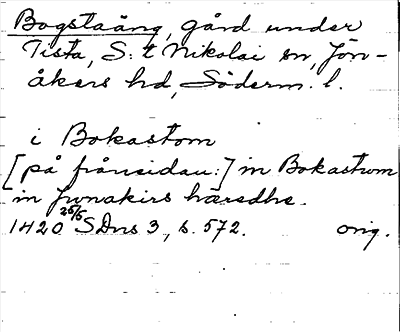 Bogstaäng, gård under
Tista, S:t Nikolai sn, Jön-
åkers hd, Söderm. l.
i Bokastom
[på frånsidan:] in Bokastum
in Junakirs hæredhe.
1420 25/5 SDns 3, s. 572. orig.